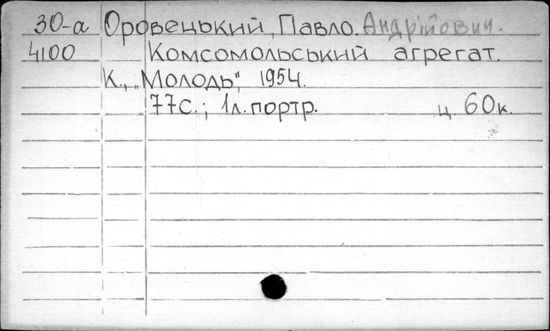 30-а Оровецький, Павло. Андрійович.
4100 Комсомольський агрегат.
К., „Молодь", 1954.
77с.; 1л. портр. ц. 60к.